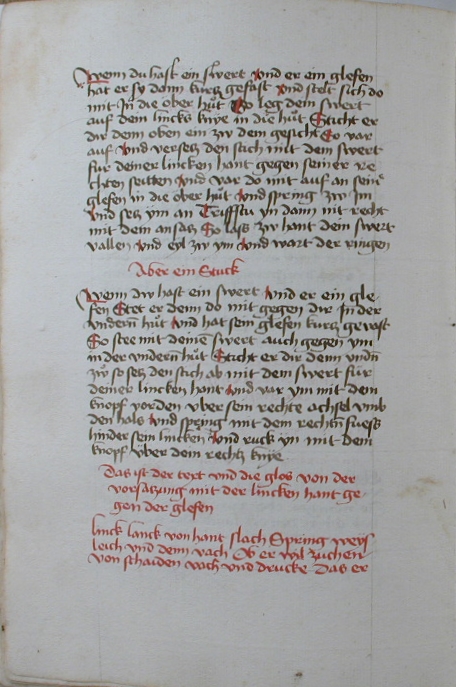 Wenn du hast ein swert vnd er ein glefen
hat er sy dann kurcz gefast vnd stelt sich do
mit In die ober hůt So leg dein swert
auf dein lincks knye in die hůt Sticht er
dir denn oben ein zw dem gesicht So var
auf vnd versecz den stich mit dem swert
fur deiner lincken hant gegen seiner re
chten seitten vnd var do mit auf an sein
glefen in die ober hůt vnd spring zw Im
vnd secz ym an Triffstu yn dann nit recht
mit dem ansacz So lass zw hant dein swert
vallen vnd eyl zw ym vnd wart der ringen
Aber ein Stuck
Wenn dw hast ein swert vnd er ein gle-
fen Stet er denn do mit gegen dir In der
vndern hůt vnd hat sein glefen kurcz gevast
So stee mit deinē swert auch gegen ym
in der vndern hůt Sticht er dir denn vndn
zw so secz den stich ab mit dem swert fur
deiner lincken hant vnd var ym mit dem
knopf vorden vber sein rechte achsel vmb
den hals vnd spring mit dem rechtn fuess
hinder sein lincken vnd ruck yn mit dem
knopf vber dein rechcz knye
Das ist der text vnd die glos von der
vorsaczung mit der lincken hant ge-
gen der glefen
linck lanck von hant slach Spring weys
leich vnd denn vach Ob er wyl zuchen
von schaiden vach vnd drucke Das er